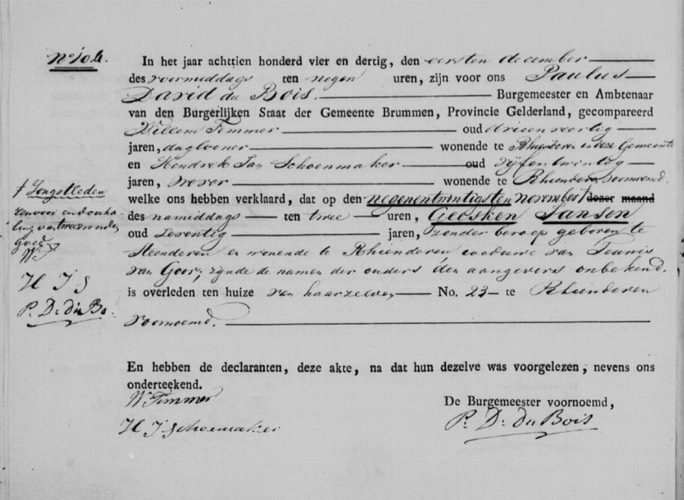 No 106.
In het jaar achttien honderd vier en dertig, den eersten december
des voormiddags ten negen uren, zijn voor ons Paulus
David du Bois Burgemeester en Ambtenaar
van den Burgerlijken Staat der Gemeente Brummen, Provincie Gelderland, gecompareerd
Willem Timmer oud drieenveertig
jaren, daglooner wonende te Rhienderen in deze Gemeente
en Hendrik Jan Schoenmaker oud vijfentwintig
jaren, wever wonende te Rhienderen voornoemd
welke ons hebben verklaard, dat op den negenentwintigsten November / dezer maand
des namiddags ten twee uren, Geesken Jansen
oud zeventig jaren, zonder beroep geboren te
Steenderen en wonende te Rhienderen weduwe van Teunis
van Goor, zijnde de namen der ouders den aangevers onbekend
is overleden ten huize van haarzelven No. 23 te Rhienderen
voornoemd.
/ Jongstleden
een woord
goed
W T
H J S
P. D. du Bo.
En hebben de declaranten, deze akte, na dat hun dezelve was voorgelezen, nevens ons
onderteekend.
W Timmer
H J Schoemaker
De Burgemeester voornoemd,
P. D. du Bois